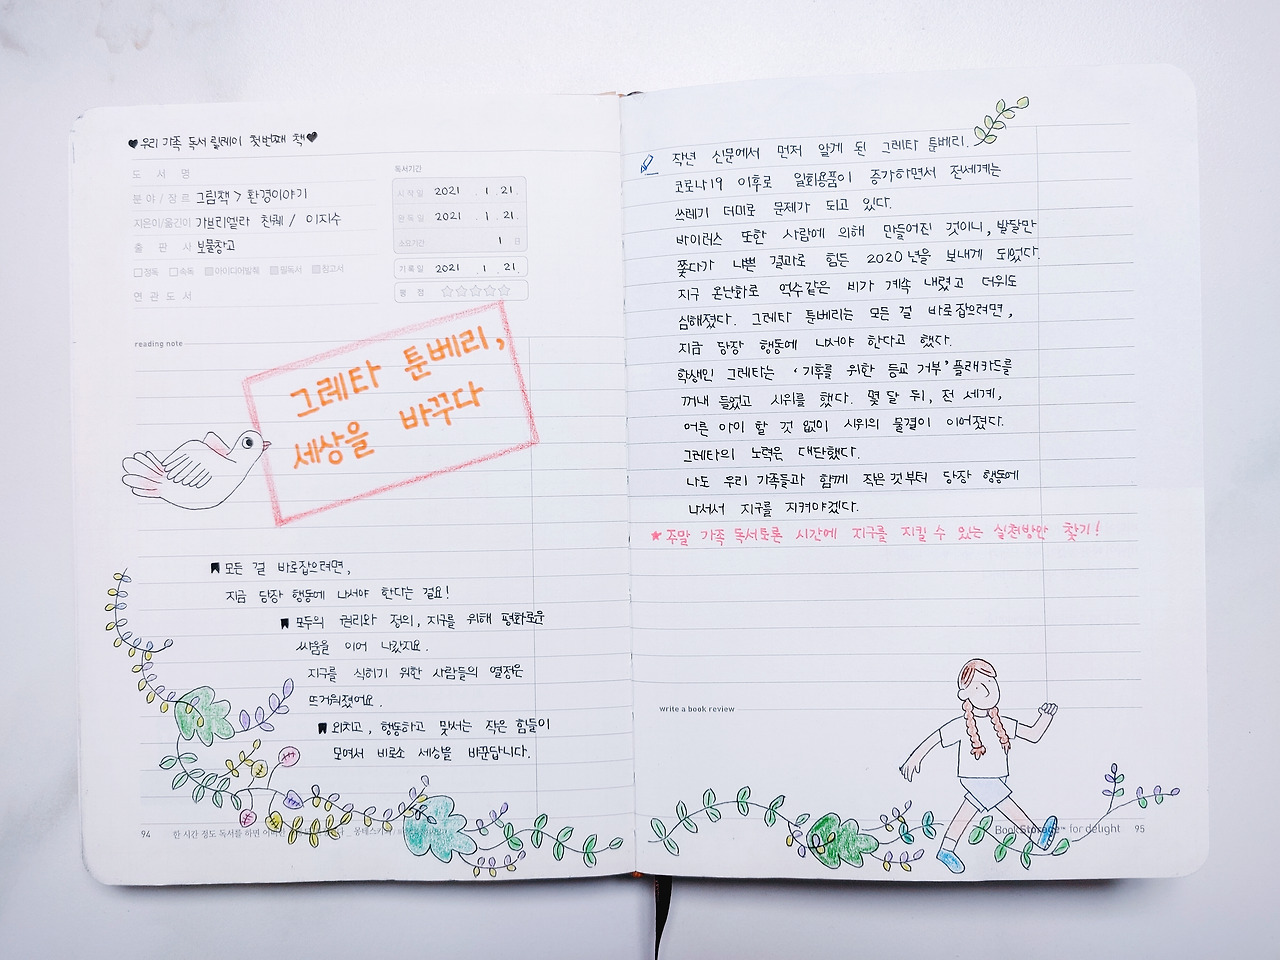 ♥우리 가족 독서 릴레이 첫번째 책♥
도 서 명
분야/장르 그림책 > 환경이야기
지은이/옮긴이 가브리엘라 친퀘 / 이지수
출 판 사 보물창고
□정독 □속독 아이디어발췌 필독서 참고서
연 관 도 서
독서기간
시작일 2021 . 1 . 21.
완독일 2021 . 1 . 21.
소요기간 1 일
기록일 2021 . 1 . 21.
평 점 ☆☆☆☆☆
reading note
그레타 툰베리,
세상을 바꾸다
모든 걸 바로잡으려면,
지금 당장 행동에 나서야 한다는 걸요!
모두의 권리와 정의, 지구를 위해 평화로운
싸움을 이어 나갔지요.
지구를 식히기 위한 사람들의 열정은
뜨거워졌어요.
외치고, 행동하고 맞서는 작은 힘들이
모여서 비로소 세상을 바꾼답니다.
94
한 시간 정도 독서를 하면 _ 몽테스키외
작년 신문에서 먼저 알게 된 그레타 툰베리.
코로나19 이후로 일회용품이 증가하면서 전세계는
쓰레기 더미로 문제가 되고 있다.
바이러스 또한 사람에 의해 만들어진 것이니, 발달만
쫓다가 나쁜 결과로 힘든 2020년을 보내게 되었다.
지구 온난화로 억수같은 비가 계속 내렸고 더위도
심해졌다. 그레타 툰베리는 모든 걸 바로잡으려면,
지금 당장 행동에 나서야 한다고 했다.
학생인 그레타는 '기후를 위한 등교 거부' 플래카드를
꺼내 들었고 시위를 했다. 몇 달 뒤, 전 세계,
어른 아이 할 것 없이 시위의 물결이 이어졌다.
그레타의 노력은 대단했다.
나도 우리 가족들과 함께 작은것부터 당장 행동에
나서서 지구를 지켜야겠다.
★주말 가족 독서토론 시간에 지구를 지킬 수 있는 실천방안 찾기!
write a book review
BookStorage™ for delight 95